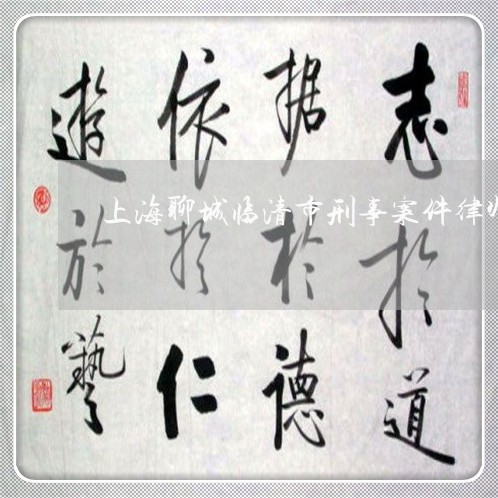 志於道
据於德
依於仁
遊於藝
上海聊城临清市刑事案件律